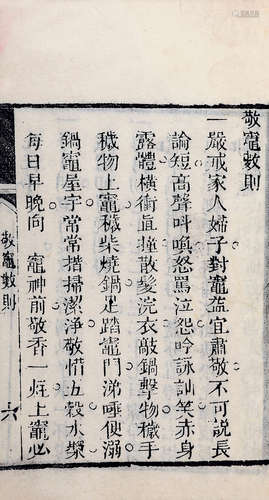 敬竈數則
一嚴戒家人婦子對竈益宜肅敬不可說長
論短高聲叫喚怒罵泣怨吟詠訕笑赤身
露體橫衝直撞散髮浣衣敲鍋擊物穢手
穢物上竈穢柴燒鍋足踏竈門涕唾便溺
鍋竈屋宇常常揩掃潔淨敬惜五穀水漿
每日早晚向　竈神前敬香一炷上竈必
敬竈數則
六